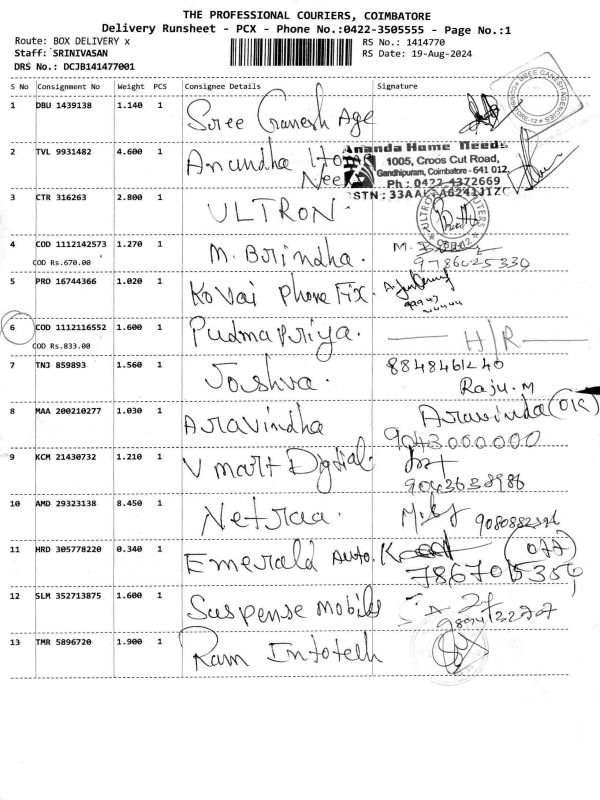 THE PROFESSIONAL COURIERS, COIMBATORE
Delivery Runsheet - PCX - Phone No.:0422-3505555 - Page No.:1
Route: BOX DELIVERY x RS No.: 1414770
Staff: SRINIVASAN RS Date: 19-Aug-2024
DRS No.: DCJB141477001
S No Consignment No Weight PCS Consignee Details Signature
1 DBU 1439138 1.140 1 Sree Ganesh Age
2 TVL 9931482 4.600 1 Anandha Home Needs
Ananda Home Needs
1005, Croos Cut Road,
Gandhipuram, Coimbatore - 641 012
Ph : 0422-4372669
3 CTR 316263 2.800 1 ULTRON
4 COD 1112142573 1.270 1 M. Brindha.
COD Rs.670.00 9786025330
5 PRO 16744366 1.020 1 Kovai Phone Fix.
6 COD 1112116552 1.600 1 Pudmapriya. H/R
COD Rs.833.00
7 TNJ 859893 1.560 1 Joshva. 8848461240
Raju.M
8 MAA 200210277 1.030 1 Aravindha Aravinda (OK)
9043000000
9 KCM 21430732 1.210 1 V mart Digital.
9043638986
10 AMD 29323138 8.450 1 Netraa.
11 HRD 305778220 0.340 1 Emerald Auto.
12 SLM 352713875 1.600 1 Suspense mobile
13 TMR 5896720 1.900 1 Ram Infotech